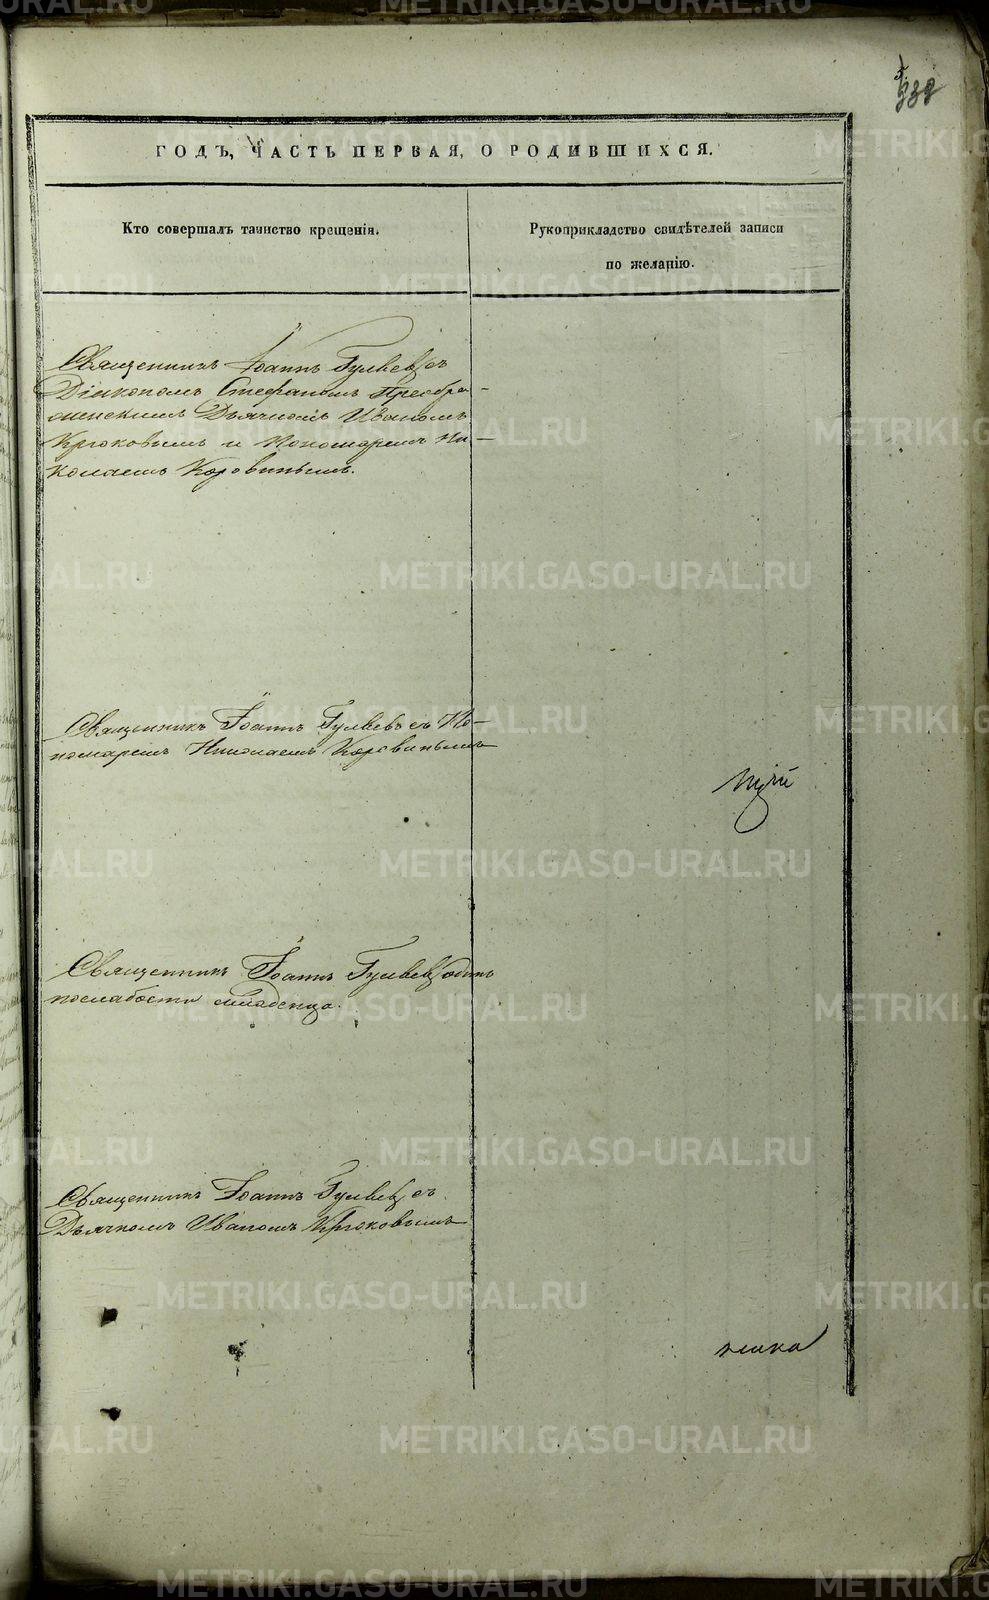 932
ГОДЪ, ЧАСТЬ ПЕРВАЯ, О РОДИВШИХСЯ.
Кто совершалъ таинство крещенія.
Рукоприкладство свидѣтелей записи
по желанію.
Священникъ Іоаннъ Гуляевъ съ
Діакономъ Стефаномъ Преобра-
женскимъ Дьячкомъ Иваномъ
Крюковымъ и Пономаремъ Ни-
колаемъ Коровинымъ.
Священникъ Іоаннъ Гуляевъ съ По-
номаремъ Николаемъ Коровинымъ
Священникъ Іоаннъ Гуляевъ одинъ
послабости младенца.
Священникъ Іоаннъ Гуляевъ съ
Дьячкомъ Иваномъ Крюковымъ
METRIKI.GASO-URAL.RU